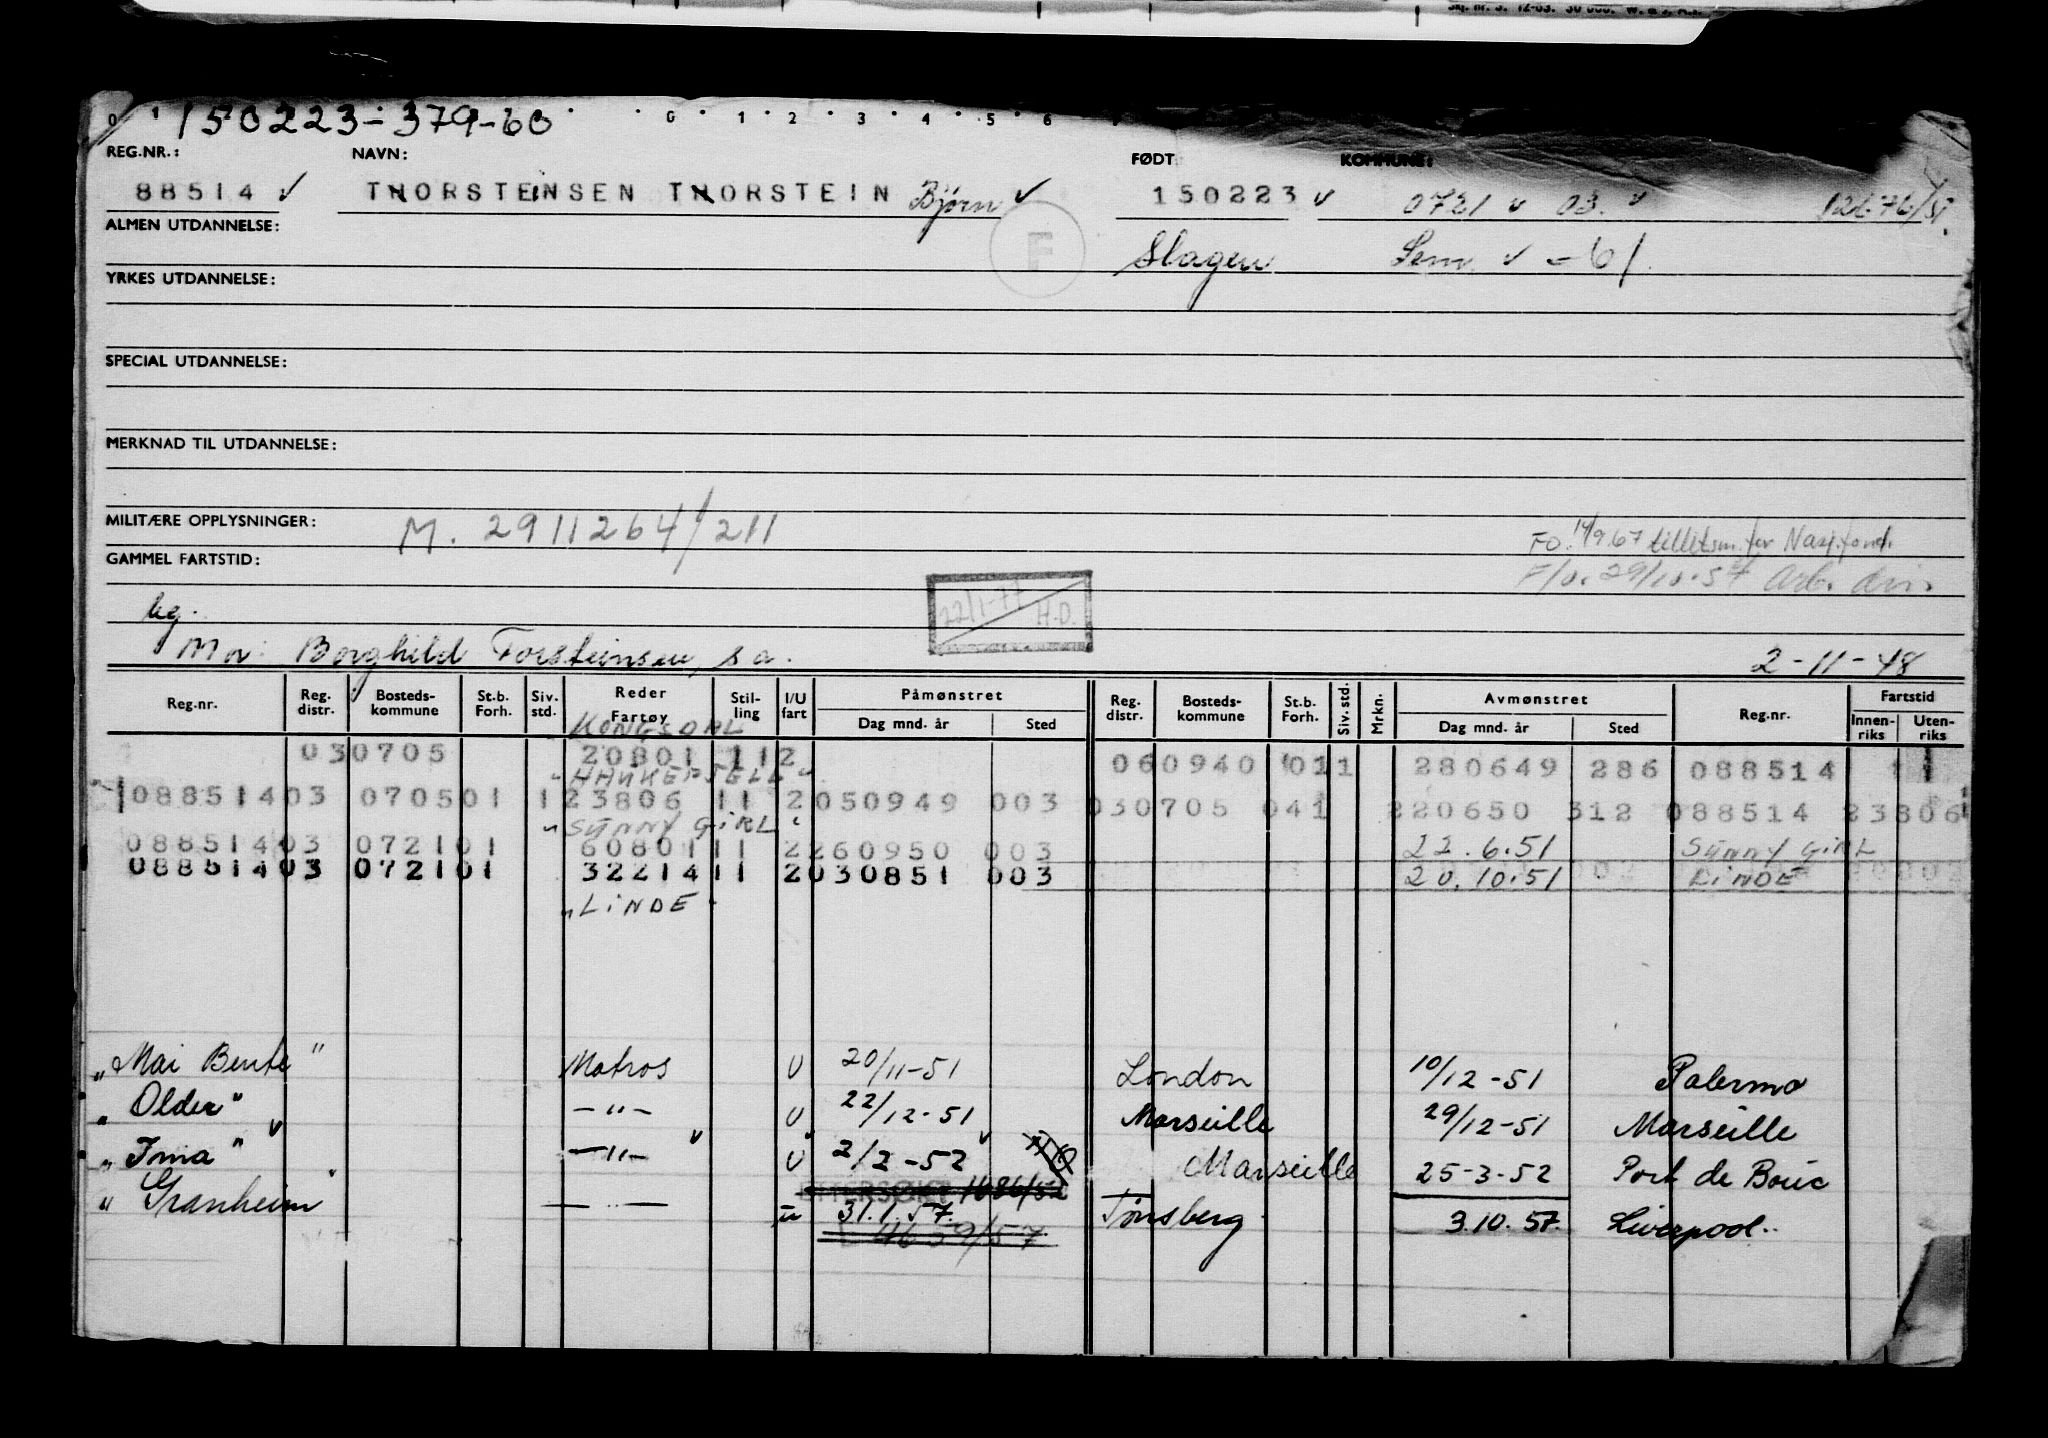 150223-379-60
0 1 2 3 4 5 6
REG.NR.: NAVN: FØDT KOMMUNE:
88514 ✓ THORSTEINSEN THORSTEIN Björn ✓ 150223 ✓ 0721 ✓ 03. ✓ 12676/51.
ALMEN UTDANNELSE: F Slagen Sem ✓ - 61.
YRKES UTDANNELSE:
SPECIAL UTDANNELSE:
MERKNAD TIL UTDANNELSE:
MILITÆRE OPPLYSNINGER: M. 2911264/211
FO. 14/9.67 tillitsm. for Nasj.fond.
GAMMEL FARTSTID: F/o. 29/10.57 Arb. div.
22/1-77 H.D.
ug.
Mor: Borghild Torsteinsen, s a. 2-11-48
Reg.nr. Reg. distr. Bosteds-kommune St.b. Forh. Siv. std. Reder Fartøy Stil-ling I/U fart Påmønstret Dag mnd. år Sted Reg. distr. Bosteds-kommune St.b. Forh. Siv. std. Mrkn. Avmønstret Dag mnd. år Sted Reg.nr. Fartstid Innen-riks Uten-riks
KONGSDAL
030705 20801 112 060940 011 280649 286 088514
088514 03 070501 1 23806 11 2 050949 003 030705 041 220650 312 088514 23806
"SUNNY GIRL"
088514 03 072101 60801 11 2 260950 003 22.6.51 SUNNY GIRL
088514 03 072101 32214 11 2 030851 003 20.10.51 LINDE
"LINDE"
"Mai Bente" Matros U 20/11-51 London 10/12-51 Palermo
"Older" -"- U 22/12-51 Marseille 29/12-51 Marseille
"Irma" ✓ -"- ✓ U 2/2-52 ✓ Marseille 25-3-52 Port de Bouc
ETTERSØKT 1686/52
"Granheim" — — u 31.1.57. Tönsberg 3.10.57. Liverpool.
4639/57